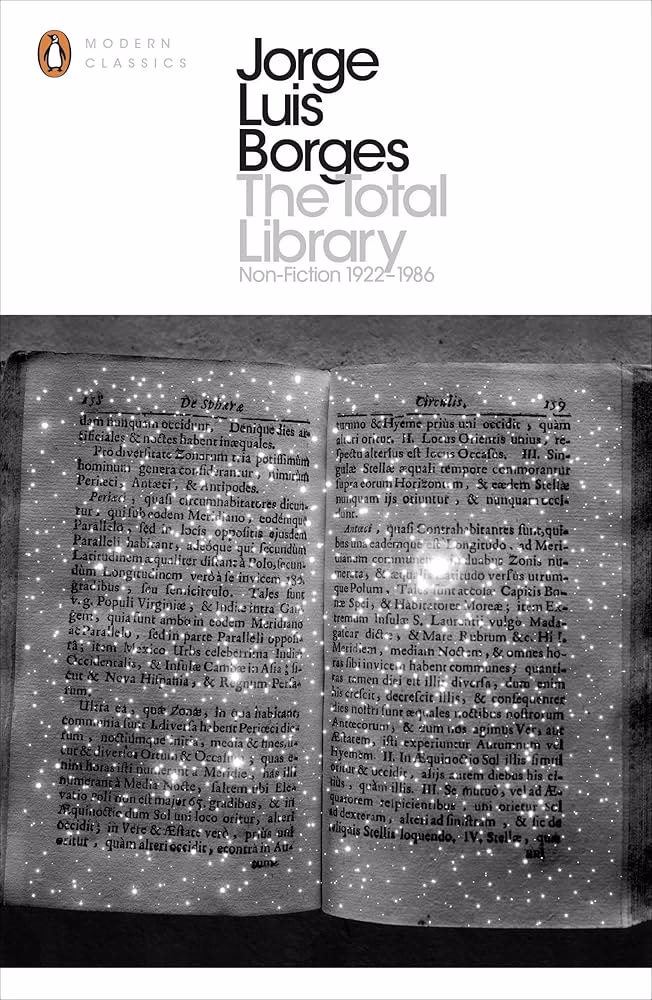 MODERN
CLASSICS
Jorge
Luis
Borges
The Total
Library
Non-Fiction 1922–1986
158 De Sphæra
dam nunquam occidunt, Denique dies ar-
tificiales & noctes habent inæquales.
Pro diverſitate Zonarum tria potiſſimùm
hominum genera conſiderantur, nimirùm
Periæci, Antæci, & Antipodes.
Periæci, quaſi circumhabitatores dicun-
tur, qui ſub eodem Meridiano, eodemque
Parallelo, ſed in locis oppoſitis ejuſdem
Paralleli habitant, adeòque qui ſecundùm
Latitudinem æqualiter diſtant à Polo, ſecun-
dùm Longitudinem verò à ſe invicem 180.
gradibus, ſeu ſemicirculo. Tales ſunt
v.g. Populi Virginiæ, & Indiæ intra Gan-
gem, quia ſunt ambo in eodem Meridiano
ac Parallelo, ſed in parte Paralleli oppoſi-
tâ; item Mexico Urbs celeberrima Indiæ
Occidentalis, & Inſulæ Cambæ in Aſia; ſi-
cut & Nova Hiſpania, & Regnum Perſa-
rum.
Ultra ea, quæ Zonæ, in qua habitant,
communia ſunt I. diverſa habent Periæci die-
rum, noctiumque initia, media & fines, ſi-
cut & diverſos Ortus & Occaſus, quas e-
nim horas iſti numerant à Meridie, has illi
numerant à Media Nocte, ſaltem ubi Ele-
vatio Poli non eſt major 65. gradibus, & in
Æquinoctio dum Sol uni loco oritur, alteri
occidit; in Vere & Æſtate verò, priùs uni
oritur, quàm alteri occidit, econtrà in Au-
tumno
Circulis. 159
tumno & Hyeme priùs uni occidit, quàm
alteri oritur. II. Locus Orientis unius, re-
ſpectu alterius eſt locus Occaſus. III. Sin-
gulæ Stellæ æquali tempore commorantur
ſupra eorum Horizontem, & eædem Stellæ
nunquam ijs oriuntur, & nunquam occi-
dunt.
Antæci, quaſi Contrahabitantes ſunt, qui-
bus una eademque eſt Longitudo, ad Meri-
dianum communem duabus Zonis
& Latitudo verſus utrum-
que Polum. Tales ſunt accolæ Capitis Bo-
næ Spei, & Habitatores Moreæ; item Ex-
tremum Inſulæ S. Laurentij vulgo Mada-
gaſcar dictæ, & Mare Rubrum &c. Hi I.
Meridiem, mediam Noctem, & omnes ho-
ras ſibi invicem habent communes; quanti-
tas tamen diei eſt illis diverſa, dum enim
his creſcit, decreſcit illis, & conſequenter
dies noſtri ſunt æquales noctibus noſtrorum
Antœcorum, & dum nos agimus Ver, aut
Æſtatem, iſti experiuntur Autumnum vel
Hyemem. II. In Æquinoctio Sol illis ſimul
oritur & occidit, alijs autem diebus his ci-
tiùs, quàm illis. III. Se mutuò, vel ad Æ-
quatorem reſpicientibus, uni orietur Sol
ad dexteram, alteri ad ſiniſtram, & ſic de
reliquis Stellis loquendo. IV. Stellæ, quæ